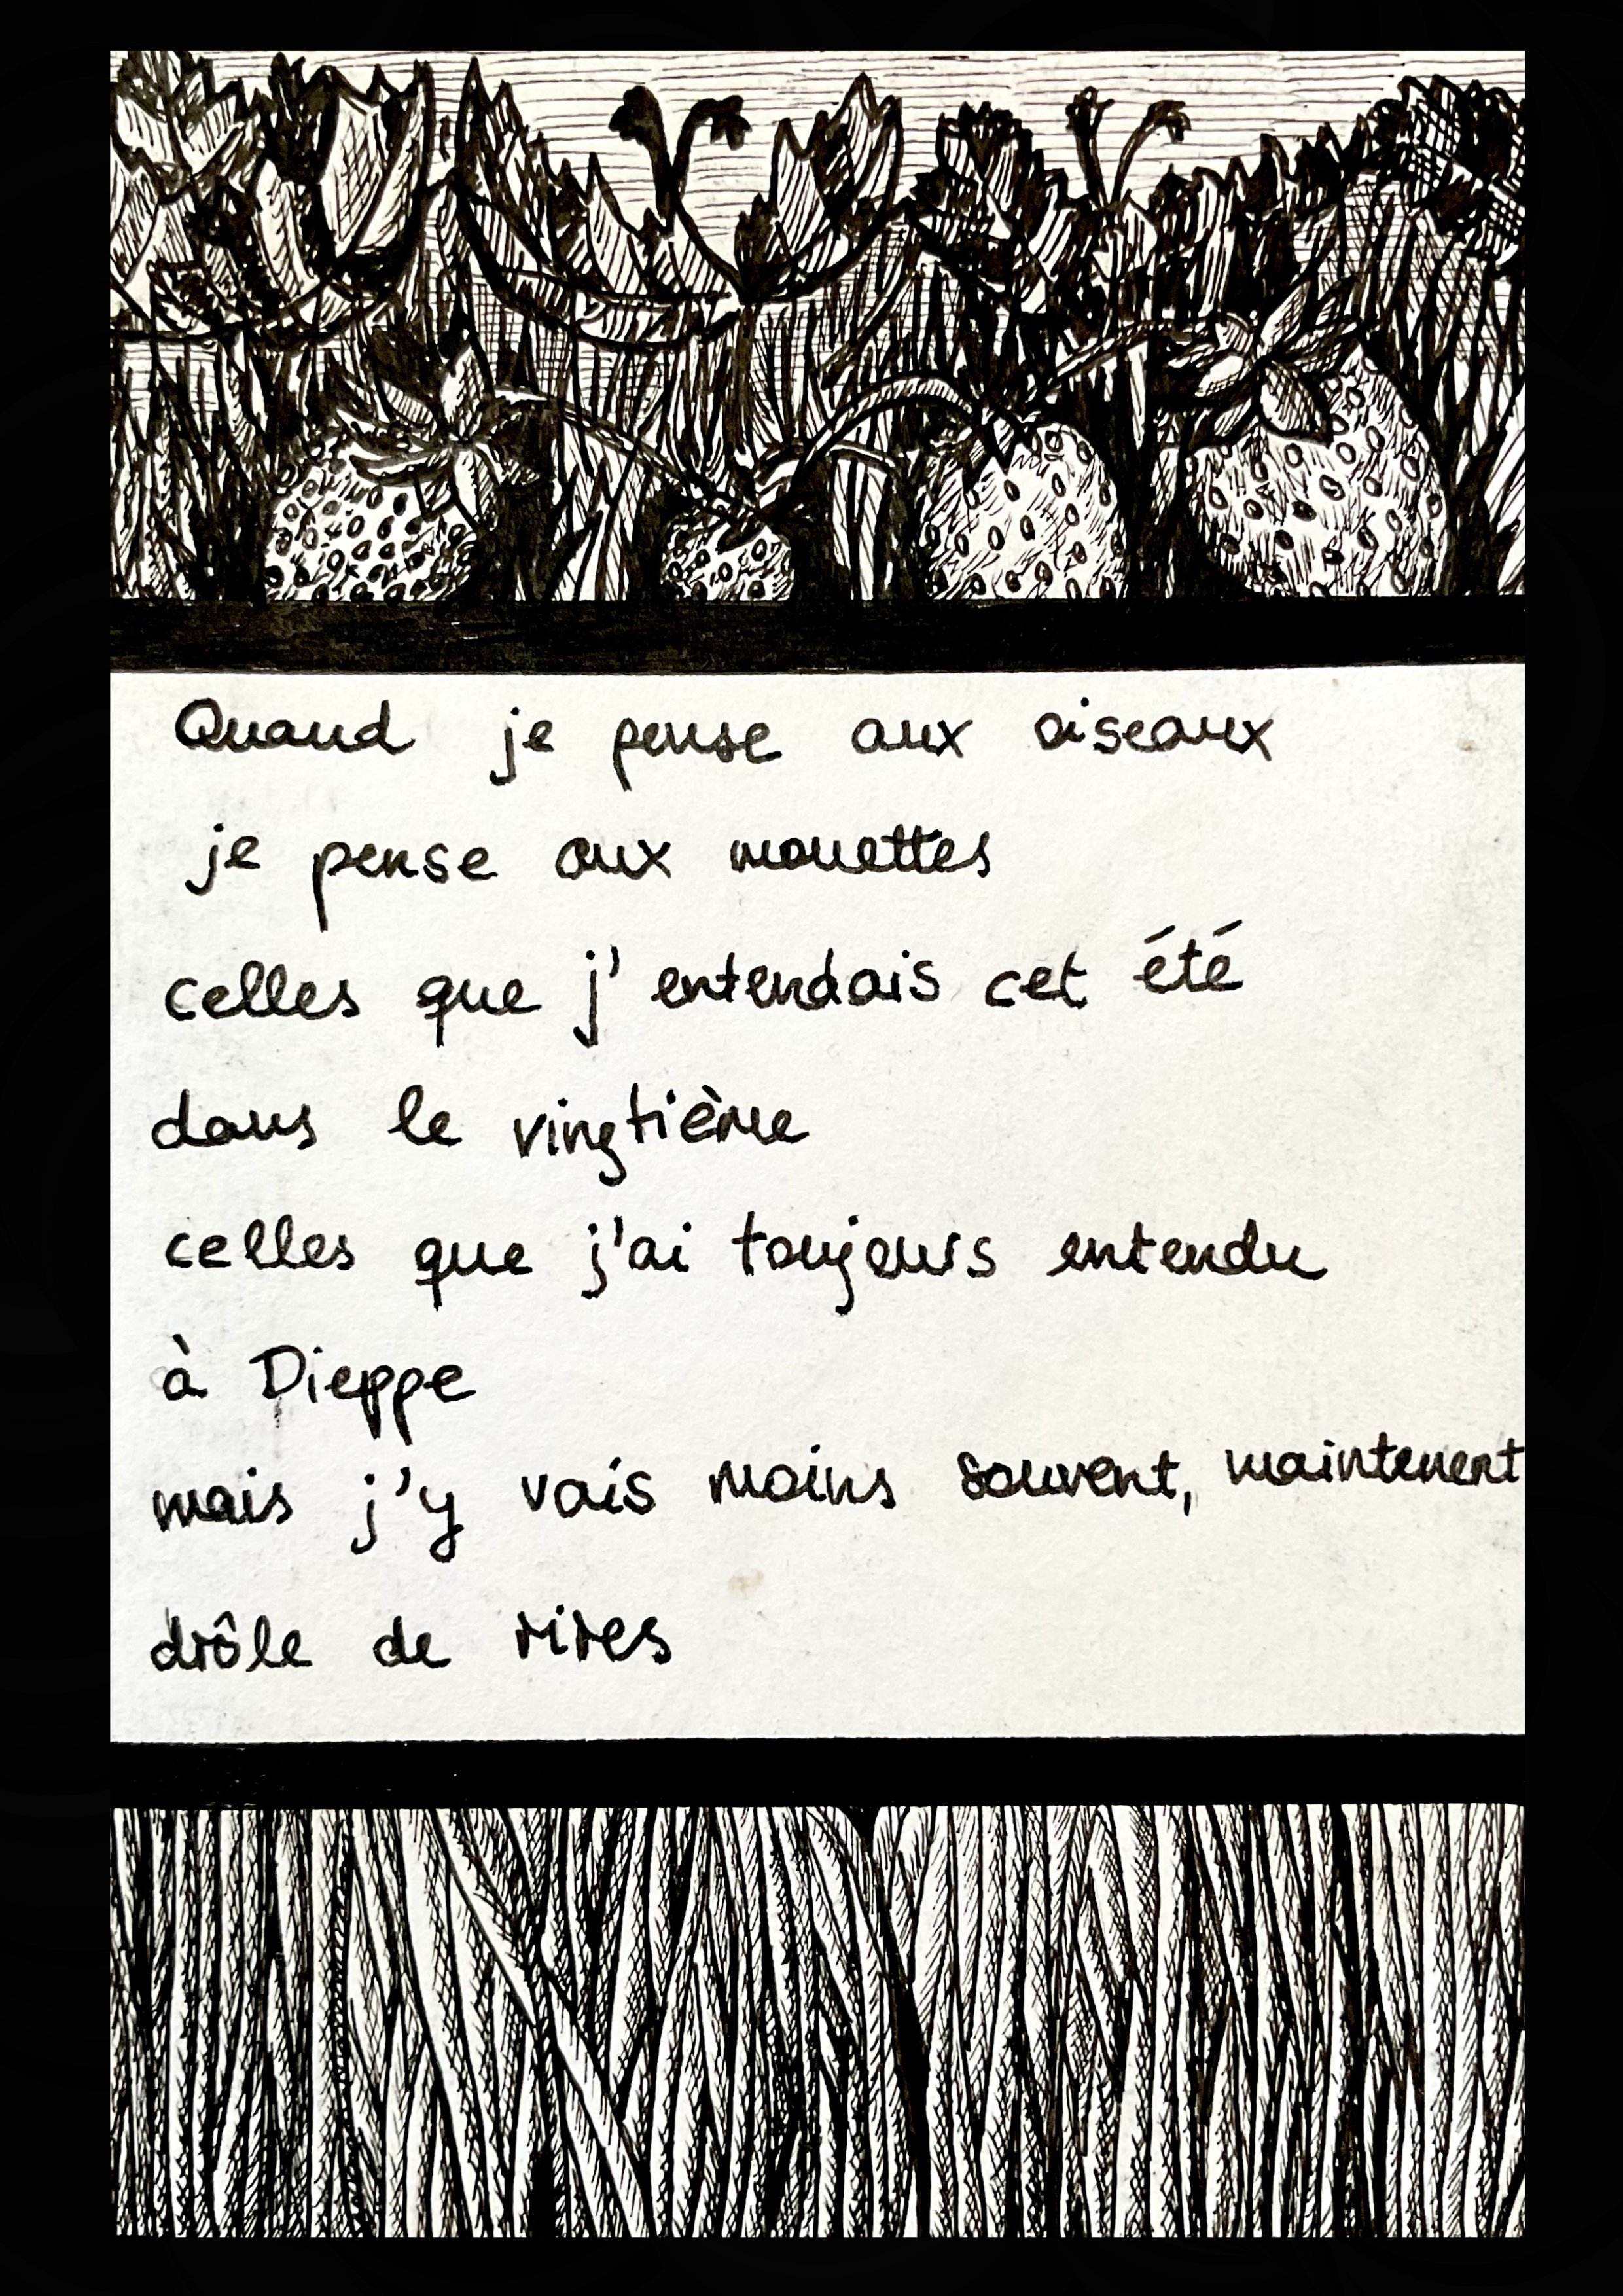 Quand je pense aux oiseaux
je pense aux mouettes
celles que j'entendais cet été
dans le vingtième
celles que j'ai toujours entendu
à Dieppe
mais j'y vais moins souvent, maintenent
drôle de rires